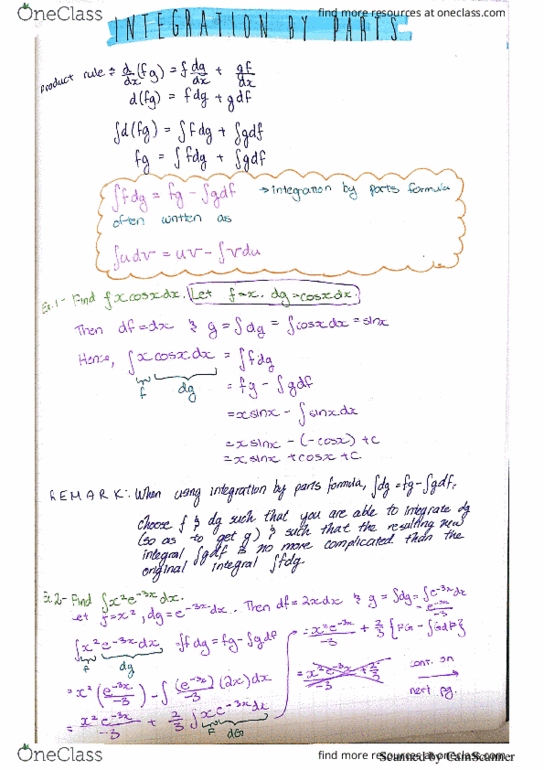 OneClass
find more resources at oneclass.com
INTEGRATION BY PARTS
product rule: d/dx (fg) = f dg/dx + gf/dx
d(fg) = fdg + gdf
∫d(fg) = ∫fdg + ∫gdf
fg = ∫fdg + ∫gdf
∫fdg = fg - ∫gdf → integration by parts formula
often written as
∫udv = uv - ∫vdu
Ex.1- Find ∫xcosxdx. Let f=x. dg=cosxdx.
Then df=dx & g=∫dg = ∫cosxdx = sinx
Hence, ∫xcosxdx = ∫fdg
f dg
= fg - ∫gdf
= xsinx - ∫sinxdx
= xsinx - (-cosx) + c
= xsinx + cosx + c.
REMARK: When using integration by parts formula, ∫dg = fg-∫gdf,
choose f & dg such that you are able to integrate dg
(so as to get g) & such that the resulting new
integral ∫gdf is no more complicated than the
original integral ∫fdg.
Ex.2- Find ∫x²e^-3x dx.
Let f=x², dg=e^-3x dx. Then df=2xdx & g=∫dg=∫e^-3x dx
= e^-3x/-3
∫x²e^-3x dx = ∫fdg = fg-∫gdf
f dg
= x²(e^-3x/-3) - ∫(e^-3x/-3)(2x)dx
= x²e^-3x/-3 + 2/3 ∫xe^-3x dx
F dG
= x²e^-3x/-3 + 2/3 {FG - ∫GdF}
= x²e^-3x/-3 + 2/3
cont. on
next pg.
OneClass
find more resources at oneclass.com
Scanned by CamScanner